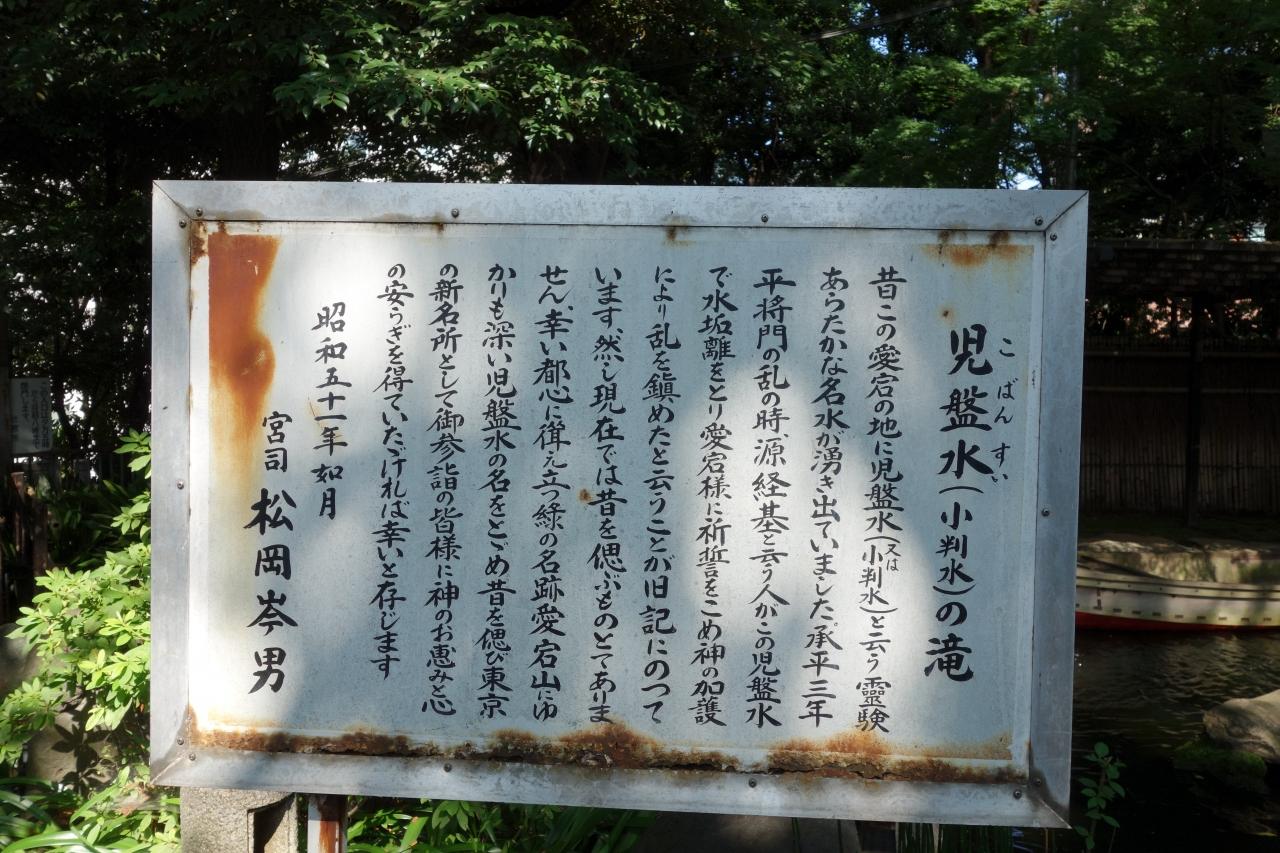 児盤水(小判水)の滝
こばんすい
昔この愛宕の地に児盤水(又は小判水)と云う靈験
あらたかな名水が湧き出ていました、承平三年
平将門の乱の時、源経基と云う人がこの児盤水
で水垢離をとり愛宕様に祈誓をこめ神の加護
により乱を鎮めたと云うことが旧記にのつて
います、然し現在では昔を偲ぶものとてありま
せん、幸い都心に聳え立つ緑の名跡愛宕山にゆ
かりも深い児盤水の名をとゞめ昔を偲び東京
の新名所として御参詣の皆様に神のお恵みと心
の安らぎを得ていたゞければ幸いと存じます
昭和五十一年如月
宮司 松岡岑男